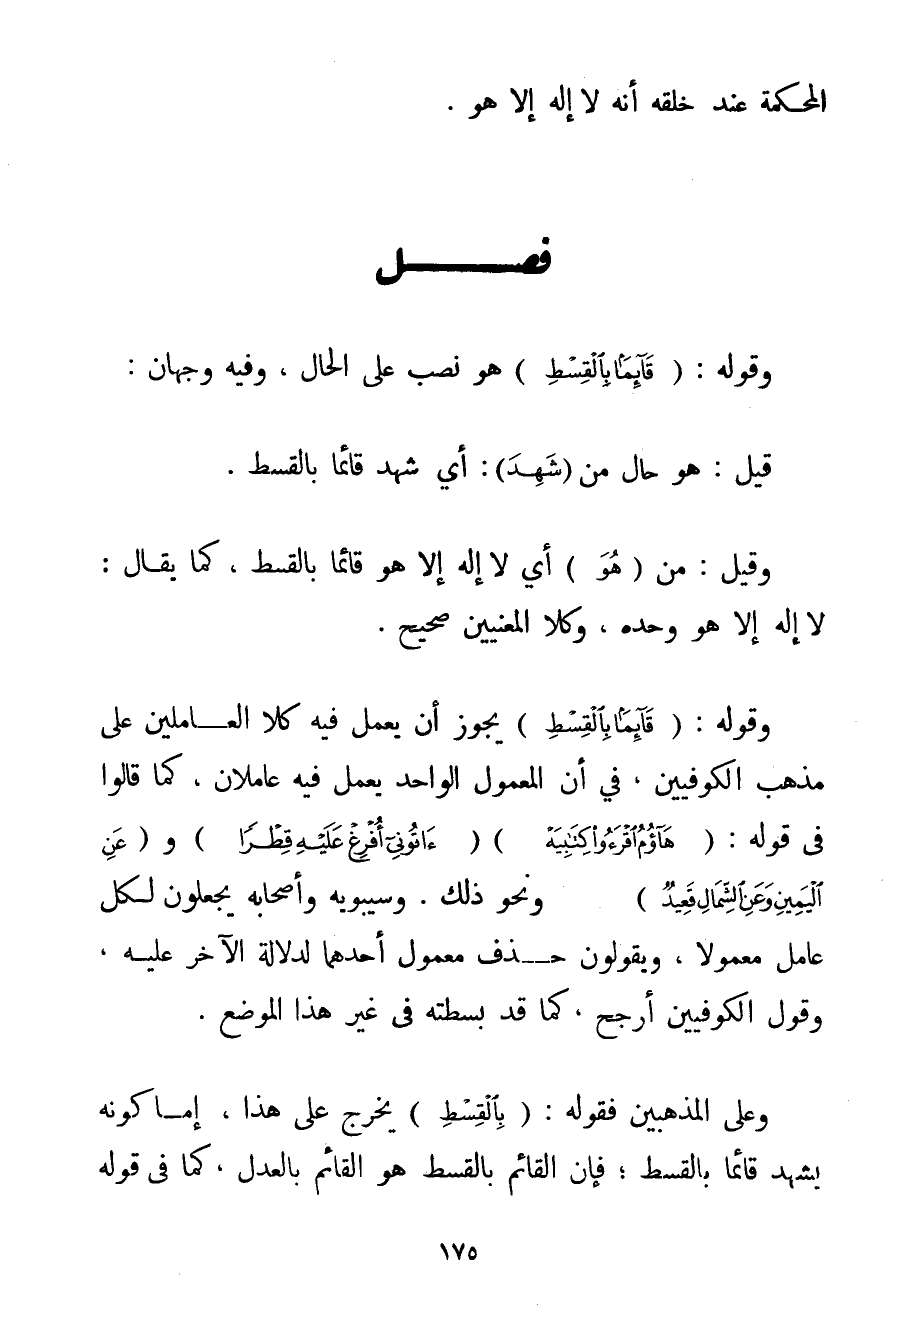 المحكمة عند خلقه أنه لا إله إلا هو .
فصل
وقوله : ( قَآئِمًۢا بِٱلْقِسْطِ ) هو نصب على الحال ، وفيه وجهان :
قيل : هو حال من (شَهِدَ) : أي شهد قائما بالقسط .
وقيل : من ( هُوَ ) أي لا إله إلا هو قائما بالقسط ، كما يقال :
لا إله إلا هو وحده ، وكلا المعنيين صحيح .
وقوله : ( قَآئِمًۢا بِٱلْقِسْطِ ) يجوز أن يعمل فيه كلا العاملين على
مذهب الكوفيين ، في أن المعمول الواحد يعمل فيه عاملان ، كما قالوا
فى قوله : ( هَآؤُمُ ٱقْرَءُوا۟ كِتَٰبِيَهْ ) ( ءَاتُونِىٓ أُفْرِغْ عَلَيْهِ قِطْرًا ) و ( عَنِ
ٱلْيَمِينِ وَعَنِ ٱلشِّمَالِ قَعِيدٌ ) ونحو ذلك . وسيبويه وأصحابه يجعلون لكل
عامل معمولا ، ويقولون حذف معمول أحدهما لدلالة الآخر عليه ،
وقول الكوفيين أرجح ، كما قد بسطته فى غير هذا الموضع .
وعلى المذهبين فقوله : ( بِٱلْقِسْطِ ) يخرج على هذا ، إما كونه
يشهد قائما بالقسط ؛ فإن القائم بالقسط هو القائم بالعدل ، كما فى قوله
١٧٥